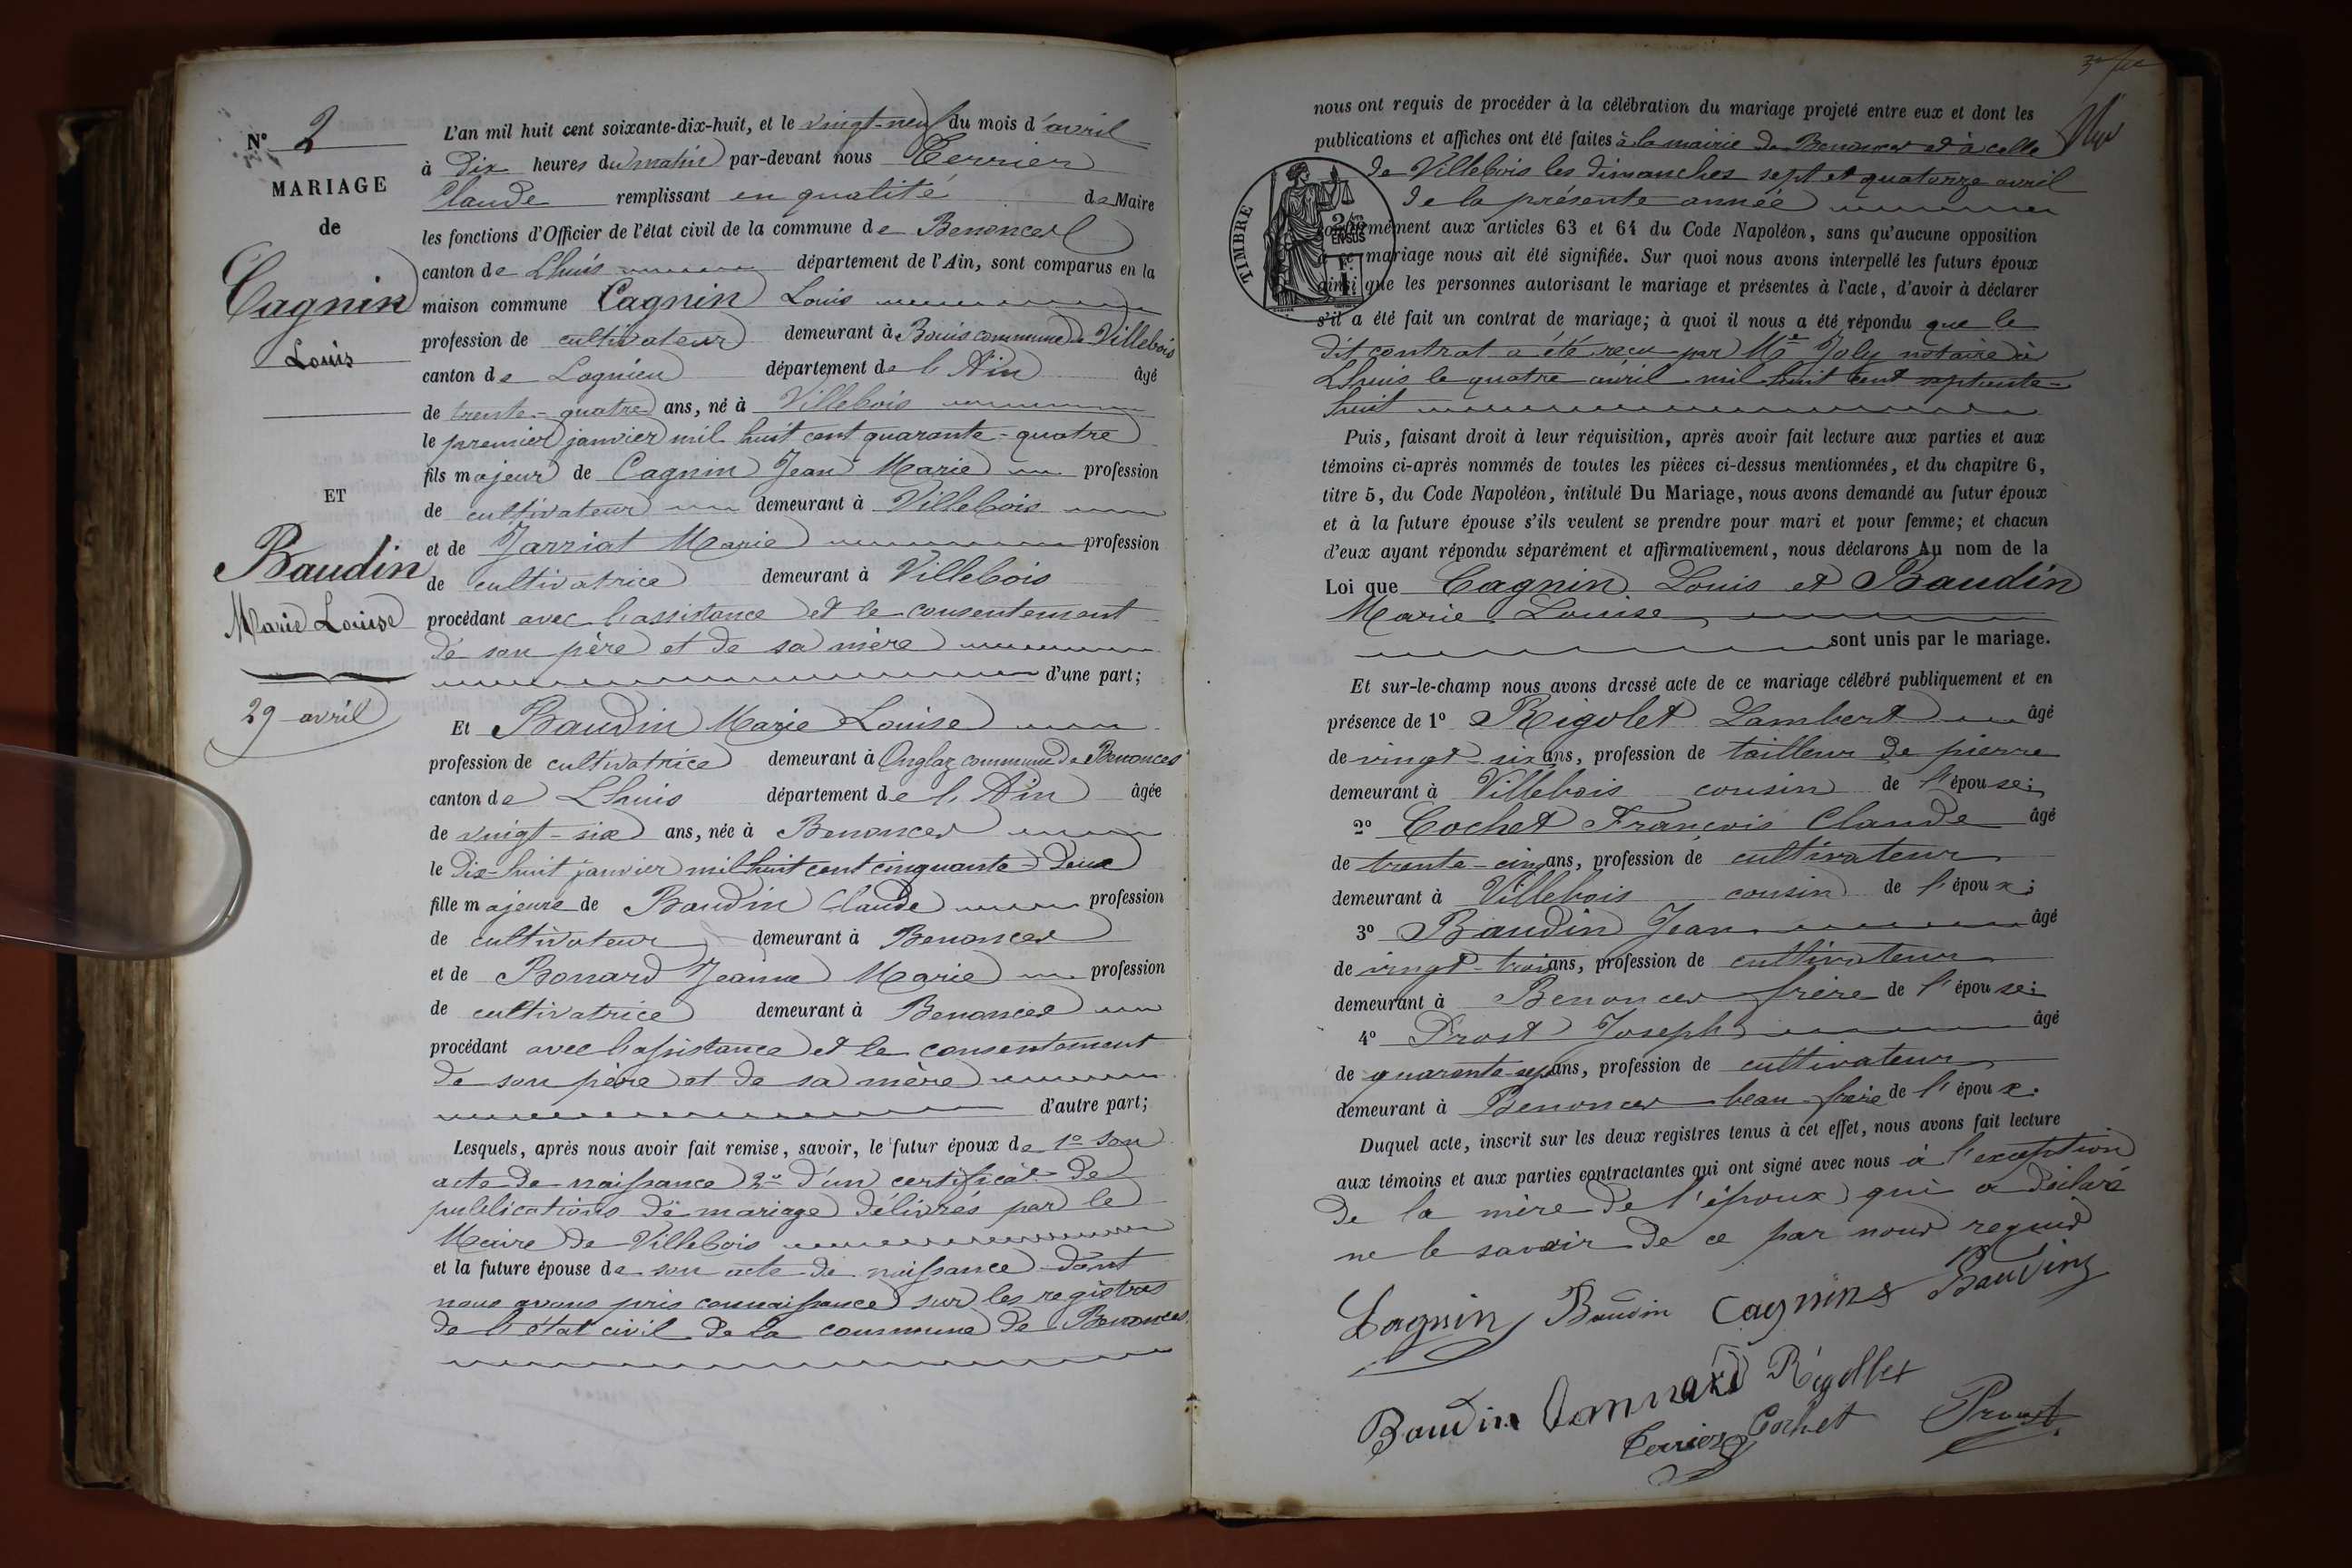 N° 2
MARIAGE
de
Cagnin
Louis
ET
Baudin
Marie Louise
29 avril
L'an mil huit cent soixante-dix-huit, et le vingt-neuf du mois d'avril
à dix heures du matin par-devant nous Terrier
Claude remplissant en qualité de Maire
les fonctions d'Officier de l'état civil de la commune de Benonces
canton de Lhuis département de l'Ain, sont comparus en la
maison commune Cagnin Louis
profession de cultivateur demeurant à Bouis commune de Villebois
canton de Lagnieu département de l'Ain âgé
de trente-quatre ans, né à Villebois
le premier janvier mil huit cent quarante-quatre
fils majeur de Cagnin Jean Marie profession
de cultivateur demeurant à Villebois
et de Jarriat Marie profession
de cultivatrice demeurant à Villebois
procédant avec l'assistance et le consentement
de son père et de sa mère
d'une part;
Et Baudin Marie Louise
profession de cultivatrice demeurant à Onglaz commune de Benonces
canton de Lhuis département de l'Ain âgée
de vingt-six ans, née à Benonces
le dix-huit janvier mil huit cent cinquante-deux
fille majeure de Baudin Claude profession
de cultivateur demeurant à Benonces
et de Bonard Jeanne Marie profession
de cultivatrice demeurant à Benonces
procédant avec l'assistance et le consentement
de son père et de sa mère
d'autre part;
Lesquels, après nous avoir fait remise, savoir, le futur époux de 1° son
acte de naissance 2° d'un certificat de
publications de mariage délivrés par le
Maire de Villebois
et la future épouse de son acte de naissance dont
nous avons pris connaissance sur les registres
de l'état civil de la commune de Benonces.
nous ont requis de procéder à la célébration du mariage projeté entre eux et dont les
publications et affiches ont été faites à la mairie de Benonces et à celle
de Villebois les dimanches sept et quatorze avril
de la présente année
TIMBRE
conformément aux articles 63 et 64 du Code Napoléon, sans qu'aucune opposition
à ce mariage nous ait été signifiée. Sur quoi nous avons interpellé les futurs époux
ainsi que les personnes autorisant le mariage et présentes à l'acte, d'avoir à déclarer
s'il a été fait un contrat de mariage; à quoi il nous a été répondu que le
dit contrat a été reçu par Me Joly notaire à
Lhuis le quatre avril mil huit cent septante-
huit
Puis, faisant droit à leur réquisition, après avoir fait lecture aux parties et aux
témoins ci-après nommés de toutes les pièces ci-dessus mentionnées, et du chapitre 6,
titre 5, du Code Napoléon, intitulé Du Mariage, nous avons demandé au futur époux
et à la future épouse s'ils veulent se prendre pour mari et pour femme; et chacun
d'eux ayant répondu séparément et affirmativement, nous déclarons Au nom de la
Loi que Cagnin Louis et Baudin
Marie Louise
sont unis par le mariage.
Et sur-le-champ nous avons dressé acte de ce mariage célébré publiquement et en
présence de 1° Rigolet Lambert âgé
de vingt-six ans, profession de tailleur de pierre
demeurant à Villebois cousin de l'épouse;
2° Cochet François Claude âgé
de trente-cinq ans, profession de cultivateur
demeurant à Villebois cousin de l'époux;
3° Baudin Jean âgé
de vingt-trois ans, profession de cultivateur
demeurant à Benonces frère de l'épouse;
4° Prost Joseph âgé
de quarante-sept ans, profession de cultivateur
demeurant à Benonces beau-frère de l'époux.
Duquel acte, inscrit sur les deux registres tenus à cet effet, nous avons fait lecture
aux témoins et aux parties contractantes qui ont signé avec nous à l'exception
de la mère de l'époux qui a déclaré
ne le savoir de ce par nous requis
Cagnin Baudin Cagnin Baudin
Baudin Bonnard Rigollet
Terrier Cochet Proust